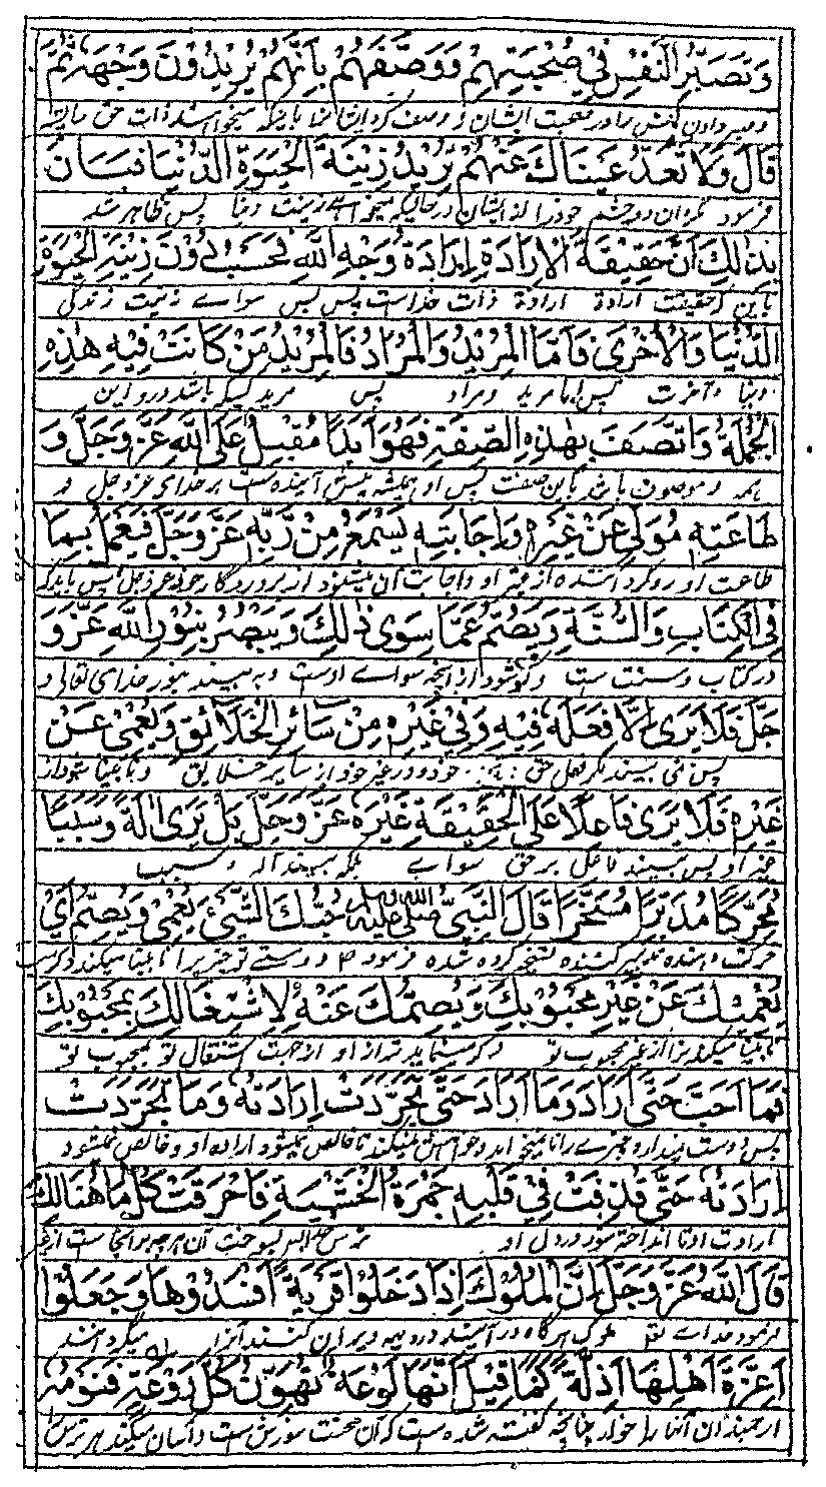 وَتَصَبُّرُ النَّفْسِ فِي صُحْبَتِهِمْ وَوَصَفَهُمْ بِأَنَّهُمْ يُرِيدُونَ وَجْهَهُ ثُمَّ
وصبر دادن نفس را در صحبت ایشان و وصف کرد ایشانرا باینکه میخواهند ذات حق را پس
قَالَ وَلَا تَعْدُ عَيْنَاكَ عَنْهُمْ تُرِيدُ زِينَةَ الْحَيٰوةِ الدُّنْيَا فَبَانَ
فرمود مگردان دو چشم خود را از ایشان در حالیکه میخواهے زینت دنیا پس ظاهر شد
بِذٰلِكَ أَنَّ حَقِيقَةَ الْإِرَادَةِ إِرَادَةُ وَجْهِ اللّٰهِ فَحَسْبُ دُوْنَ زِيْنَةِ الْحَيٰوةِ
باین که حقیقت ارادة ارادة ذات خداست پس بس سواے زینت زندگی
الدُّنْيَا وَالْأُخْرٰى فَأَمَّا الْمُرِيْدُ وَالْمُرَادُ فَالْمُرِيْدُ مَنْ كَانَتْ فِيْهِ هٰذِهِ
دنیا و آخرت پس اما مرید و مراد پس مرید کسیکه باشد درو این
الْجُمْلَةُ وَاتَّصَفَ بِهٰذِهِ الصِّفَةِ فَهُوَ أَبَدًا مُقْبِلٌ عَلَى اللّٰهِ عَزَّ وَجَلَّ وَ
همه و موصوف باشد باین صفت پس او همیشه پیش آینده است بر خدای عز و جل و
طَاعَتِهِ مُوَلٍّ عَنْ غَيْرِهِ وَإِجَابَتِهِ يَسْمَعُ مِنْ رَبِّهِ عَزَّ وَجَلَّ فَيَعْمَلُ بِمَا
طاعت او رو گرداننده از غیر او و اجابت آن میشنود از پروردگار خود عز و جل پس بآنکه
فِي الْكِتَابِ وَالسُّنَّةِ وَيَصُمُّ عَمَّا سِوٰى ذٰلِكَ وَيُبْصِرُ بِنُوْرِ اللّٰهِ عَزَّ وَ
در کتاب و سنت ست و کر شود از آنچه سواے اوست و به بیند بنور خدای تعالی و
جَلَّ فَلَا يَرٰى إِلَّا فِعْلَهُ فِيْهِ وَفِيْ غَيْرِهِ مِنْ سَائِرِ الْخَلَائِقِ وَيَعْمٰى عَنْ
پس نمی بیند مگر فعل حق خود و در غیر خود از سایر خلایق و نابینا شود از
غَيْرِهِ فَلَا يَرٰى فَاعِلًا عَلَى الْحَقِيْقَةِ غَيْرَهُ عَزَّ وَجَلَّ بَلْ يَرٰى اٰلَةً وَسَبَبًا
غیر او پس نبیند فاعلی بر حق سواے بلکه بیند آله و سبب
مُحَرَّكًا مُدَبَّرًا مُسَخَّرًا قَالَ النَّبِيُّ صَلَّى اللّٰهُ عَلَيْهِ حُبُّكَ الشَّيْءَ يُعْمِيْ وَيُصِمُّ أَيْ
حرکت تدبیر کننده تسخیر کرده شده فرمود دوستے تو چیز را نابینا میکند و کر
يُعْمِيْكَ عَنْ غَيْرِ مَحْبُوْبِكَ وَيُصِمُّكَ عَنْهُ لِاشْتِغَالِكَ بِمَحْبُوْبِكَ
نابینا میکند ترا از غیر محبوب تو و کر مینماید ترا از او از جهت اشتغال تو بمحبوب تو
فَمَا أَحَبَّ حَتّٰى أَرَادَ وَمَا أَرَادَ حَتّٰى تَجَرَّدَتْ إِرَادَتُهُ وَمَا تَجَرَّدَتْ
پس دوست میدارد چیزے را تا نمیخواهد و خواهش نمیکند تا خالص نمیشود اراده او و خالص نمیشود
إِرَادَتُهُ حَتّٰى قُذِفَتْ فِيْ قَلْبِهِ جَمْرَةُ الْخَشْيَةِ فَأَحْرَقَتْ كُلَّ مَا هُنَالِكَ
ارادت او تا انداخته نشود در دل او ترس پس بسوخت آن هر چه در آنجا ست
قَالَ اللّٰهُ عَزَّ وَجَلَّ إِنَّ الْمُلُوْكَ إِذَا دَخَلُوْا قَرْيَةً أَفْسَدُوْهَا وَجَعَلُوْا
فرمود خداے ملوک هرگاه در آیند در دیه ویران کنند آنرا میگردانند
أَعِزَّةَ أَهْلِهَا أَذِلَّةً كَمَا قِيْلَ أَنَّهَا لَوْعَةٌ تُهَوِّنُ كُلَّ رَوْعَةٍ فَنَوْمُهُ
ارجمندان آنها را خوار چنانچه گفته شده است که آن محبت سوزش ست و آسان میکند هر ترس را